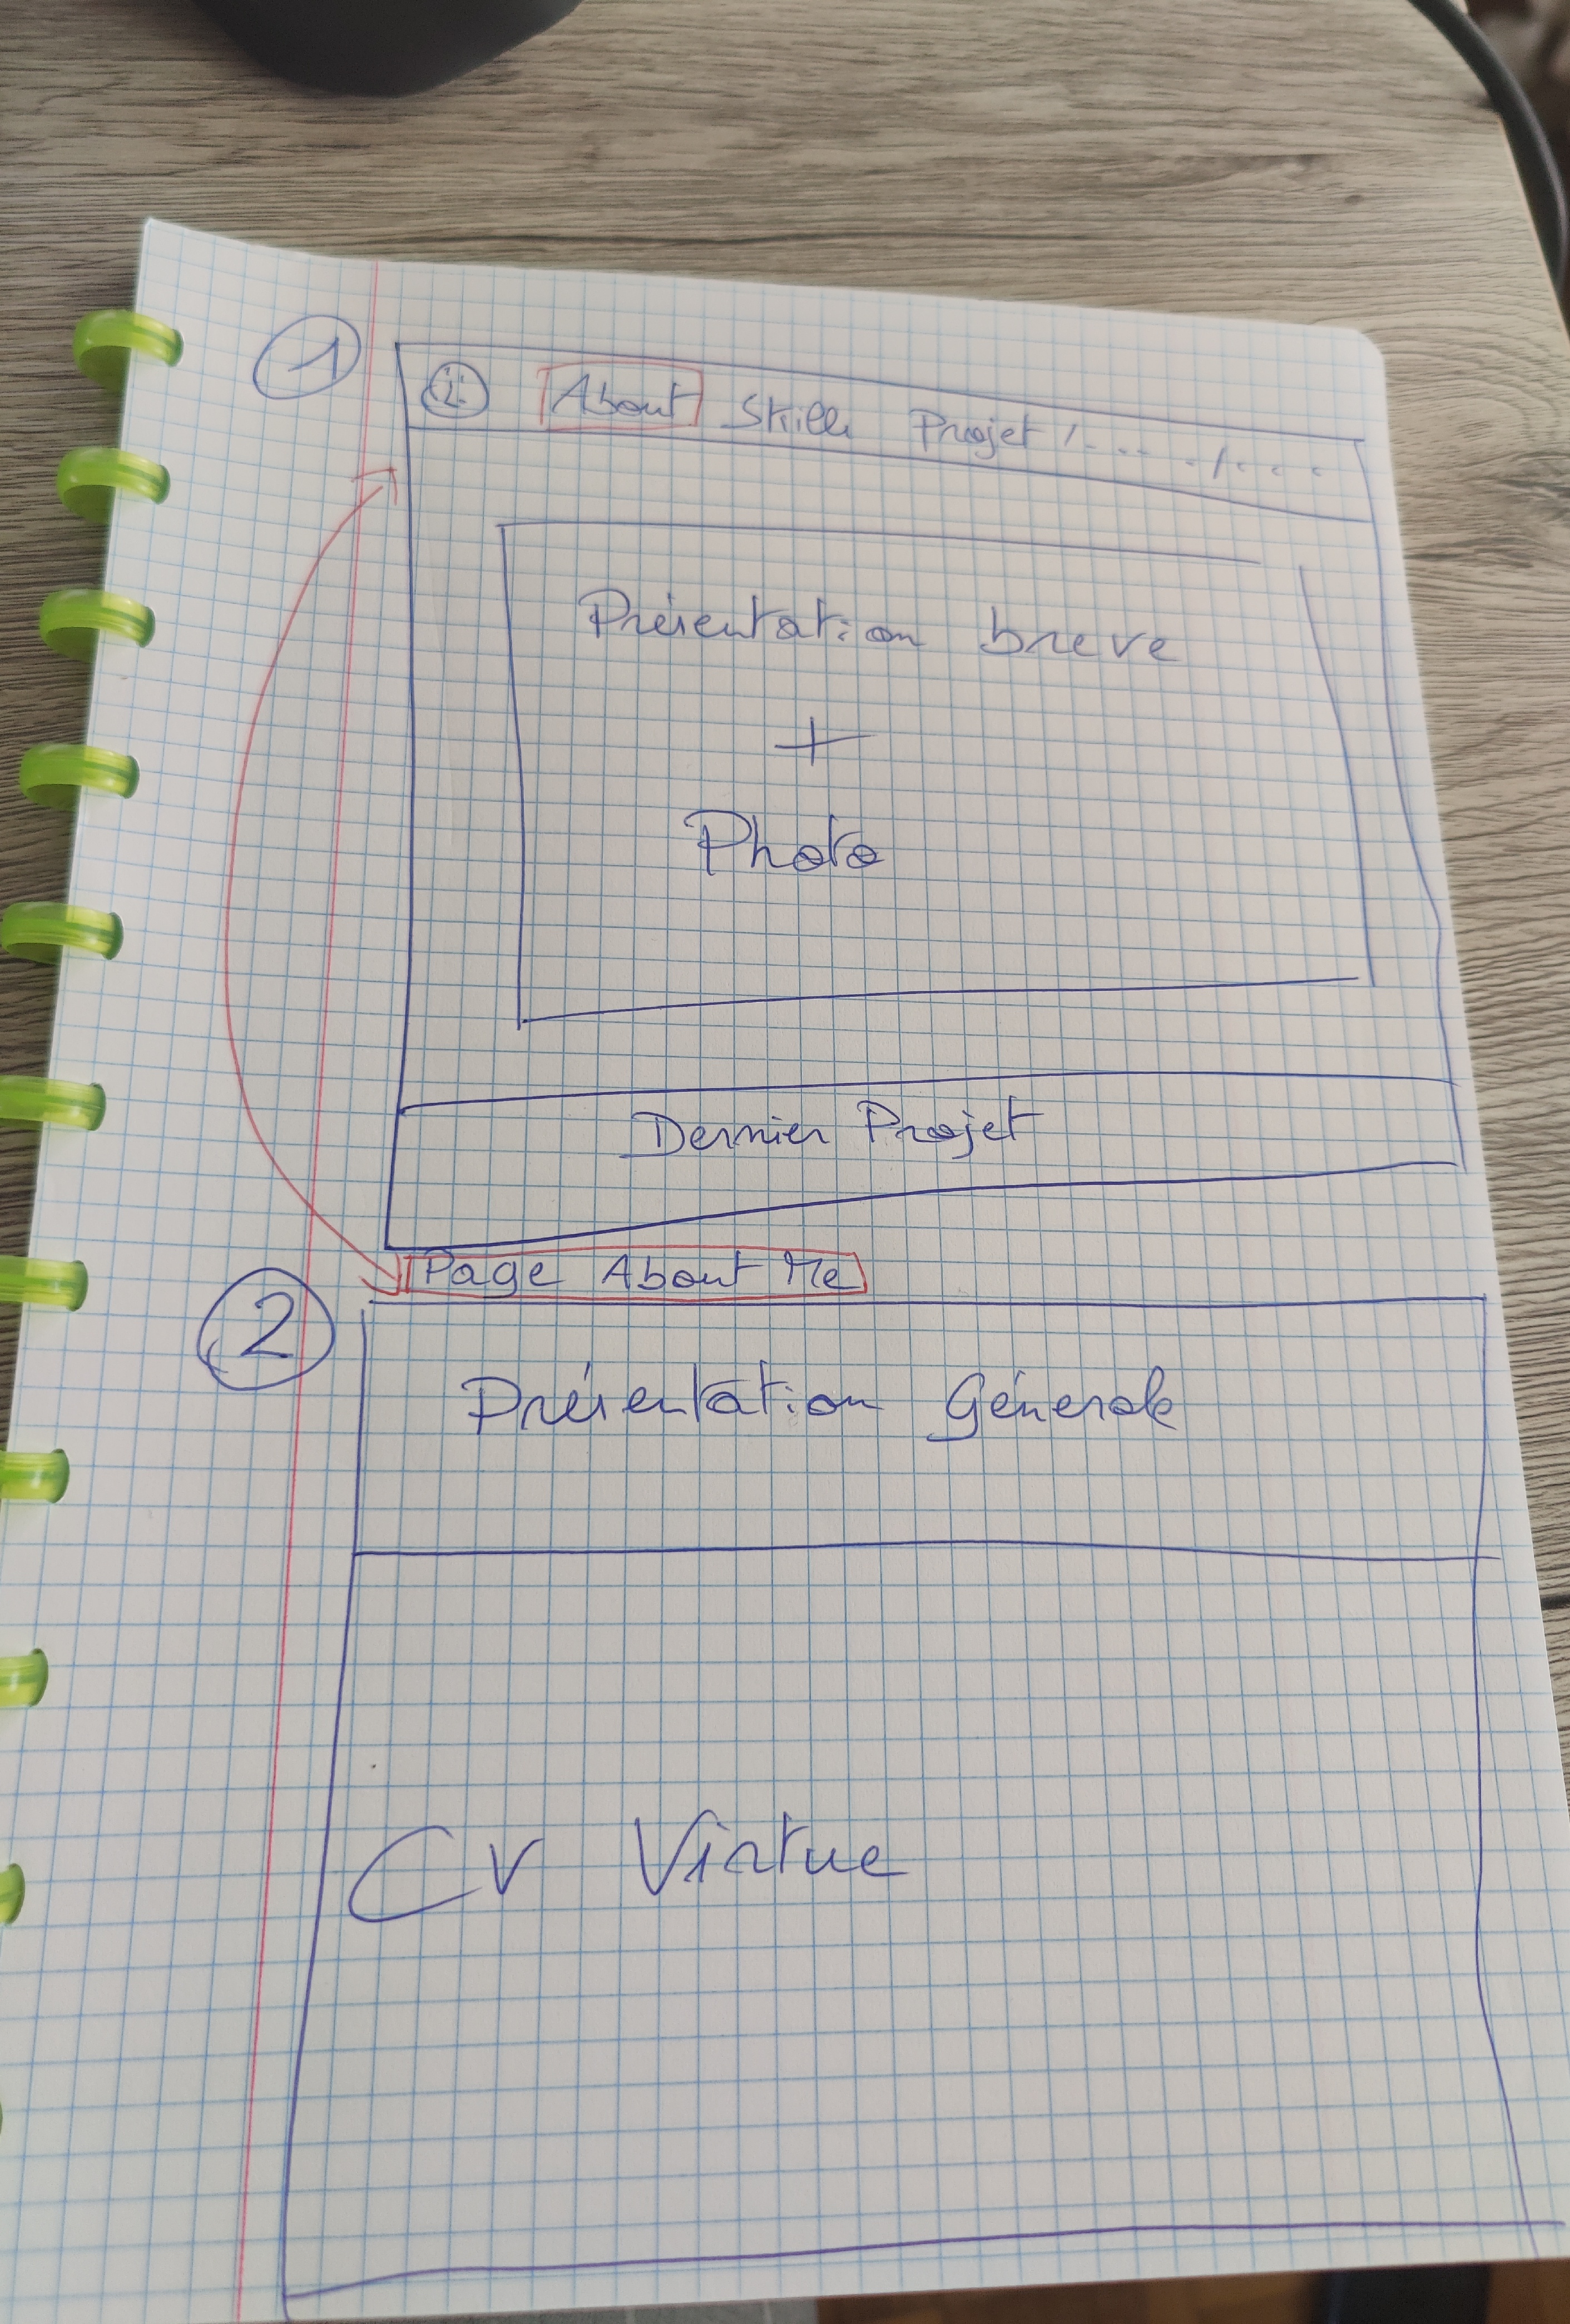 1
About Skills Projet /... ./...
Présentation breve
+
Photo
Dernier Projet
Page About Me
2
Présentation Génerale
CV Virtue